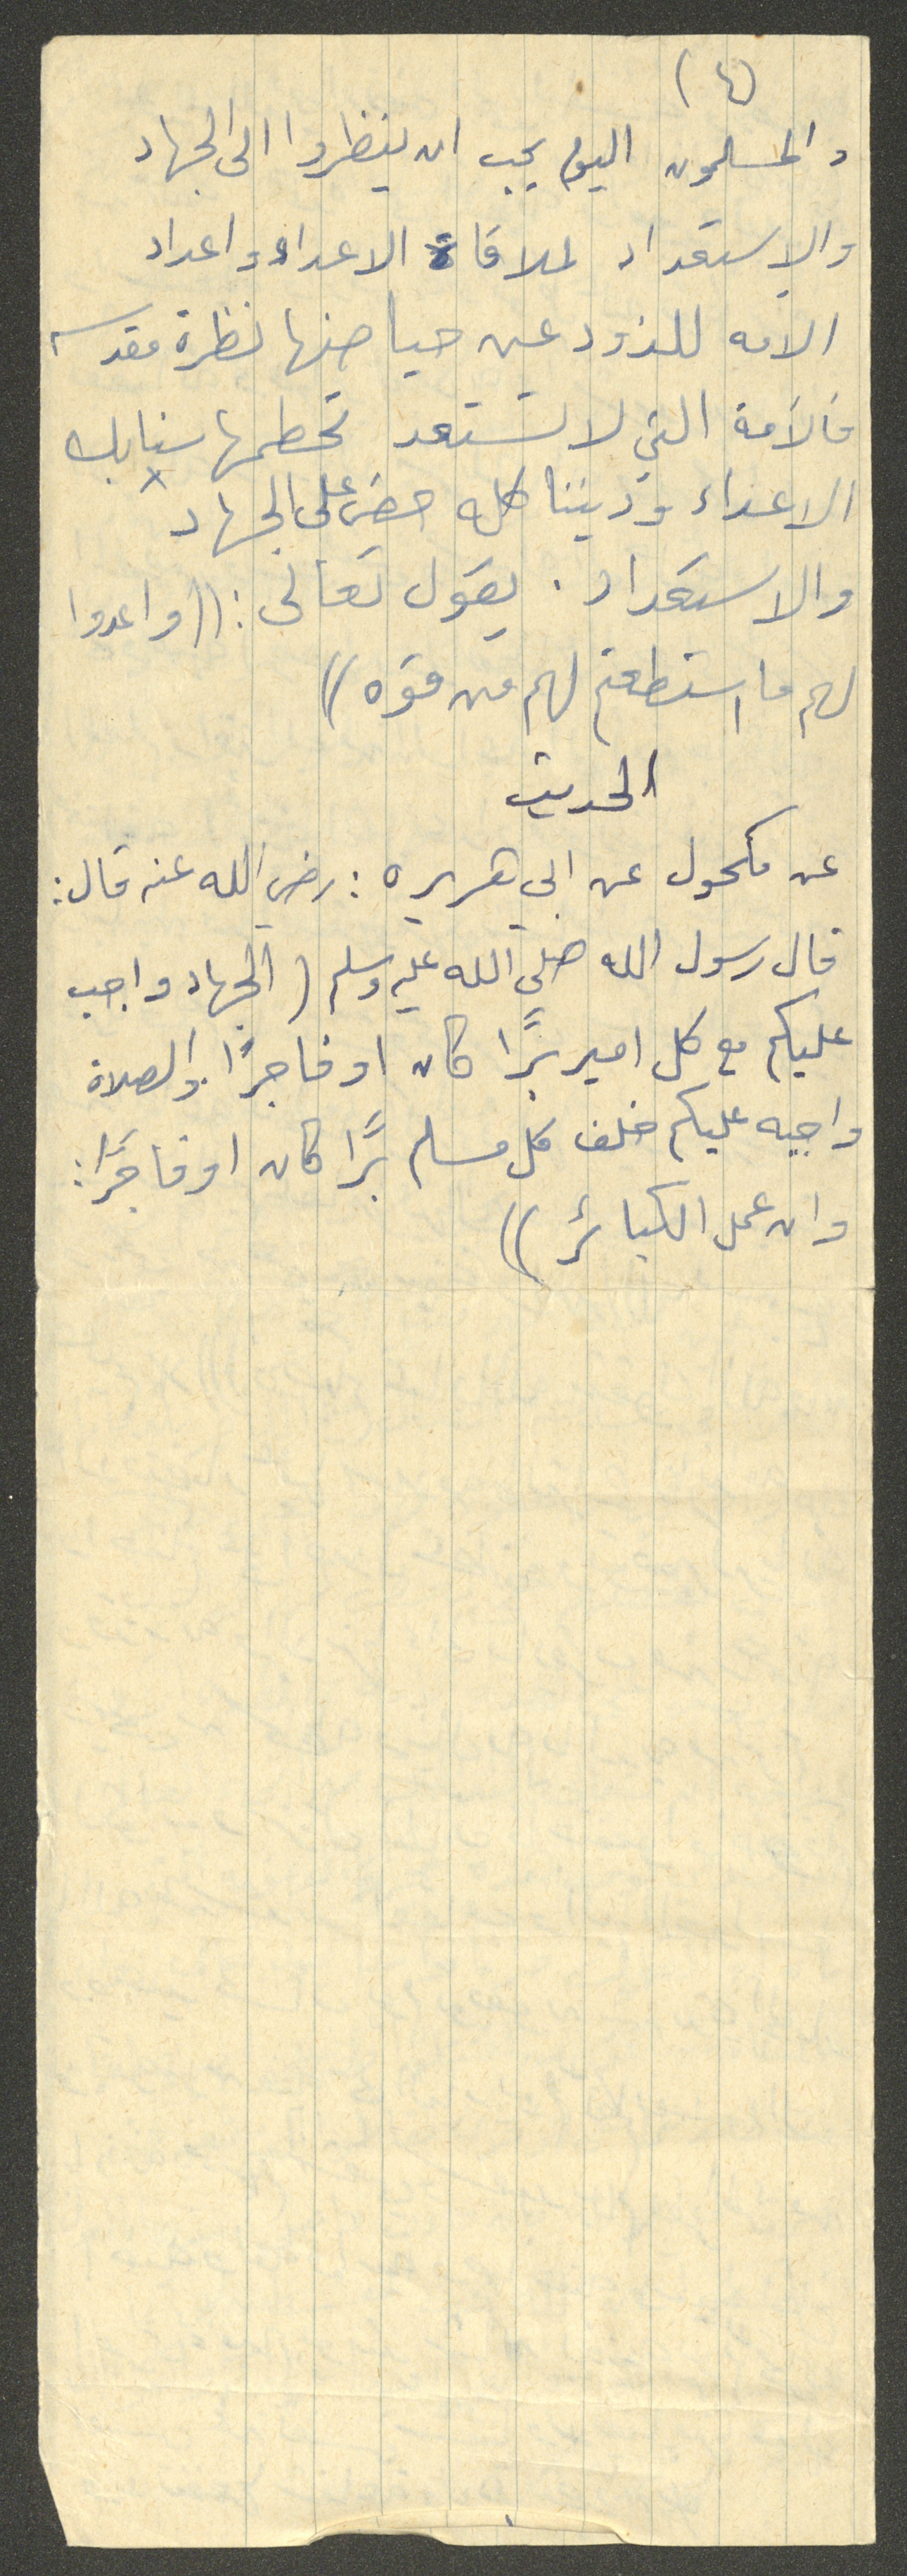 (٤)
والمسلمون اليوم يجب ان ينظروا الى الجهاد
والاستعداد لملاقاة الاعداء واعداد
الامه للذود عن حياضها نظرة مقدسه
فالأمة التي لا تستعد تحطمها سنابك
الاعداء وديننا كله حض على الجهاد
والاستعداد . يقول تعالى : ((واعدوا
لهم ما استطعتم لهم من قوه ))
الحديث
عن مكحول عن ابي هريره : رضي الله عنه قال :
قال رسول الله صلي الله عليه وسلم ( الجهاد واجب
عليكم مع كل امير برًا كان او فاجرًا والصلاة
واجبه عليكم خلف كل مسلم برًا كان او فاجرًا :
وان عمل الكبائر ))